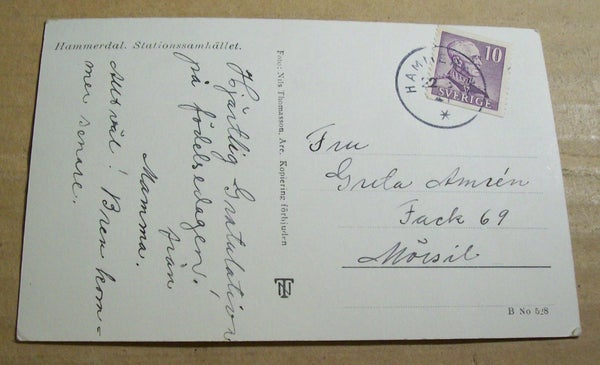 Hammerdal. Stationssamhället.
Hjärtlig Gratulation
på födelsedagen.
från
Mamma.
Allt väl! Brev kom-
mer senare.
Foto: Nils Thomasson, Åre. Kopiering förbjuden
10
SVERIGE
HAMME
Fru
Greta Amrén
Fack 69
Mörsil
B No 528